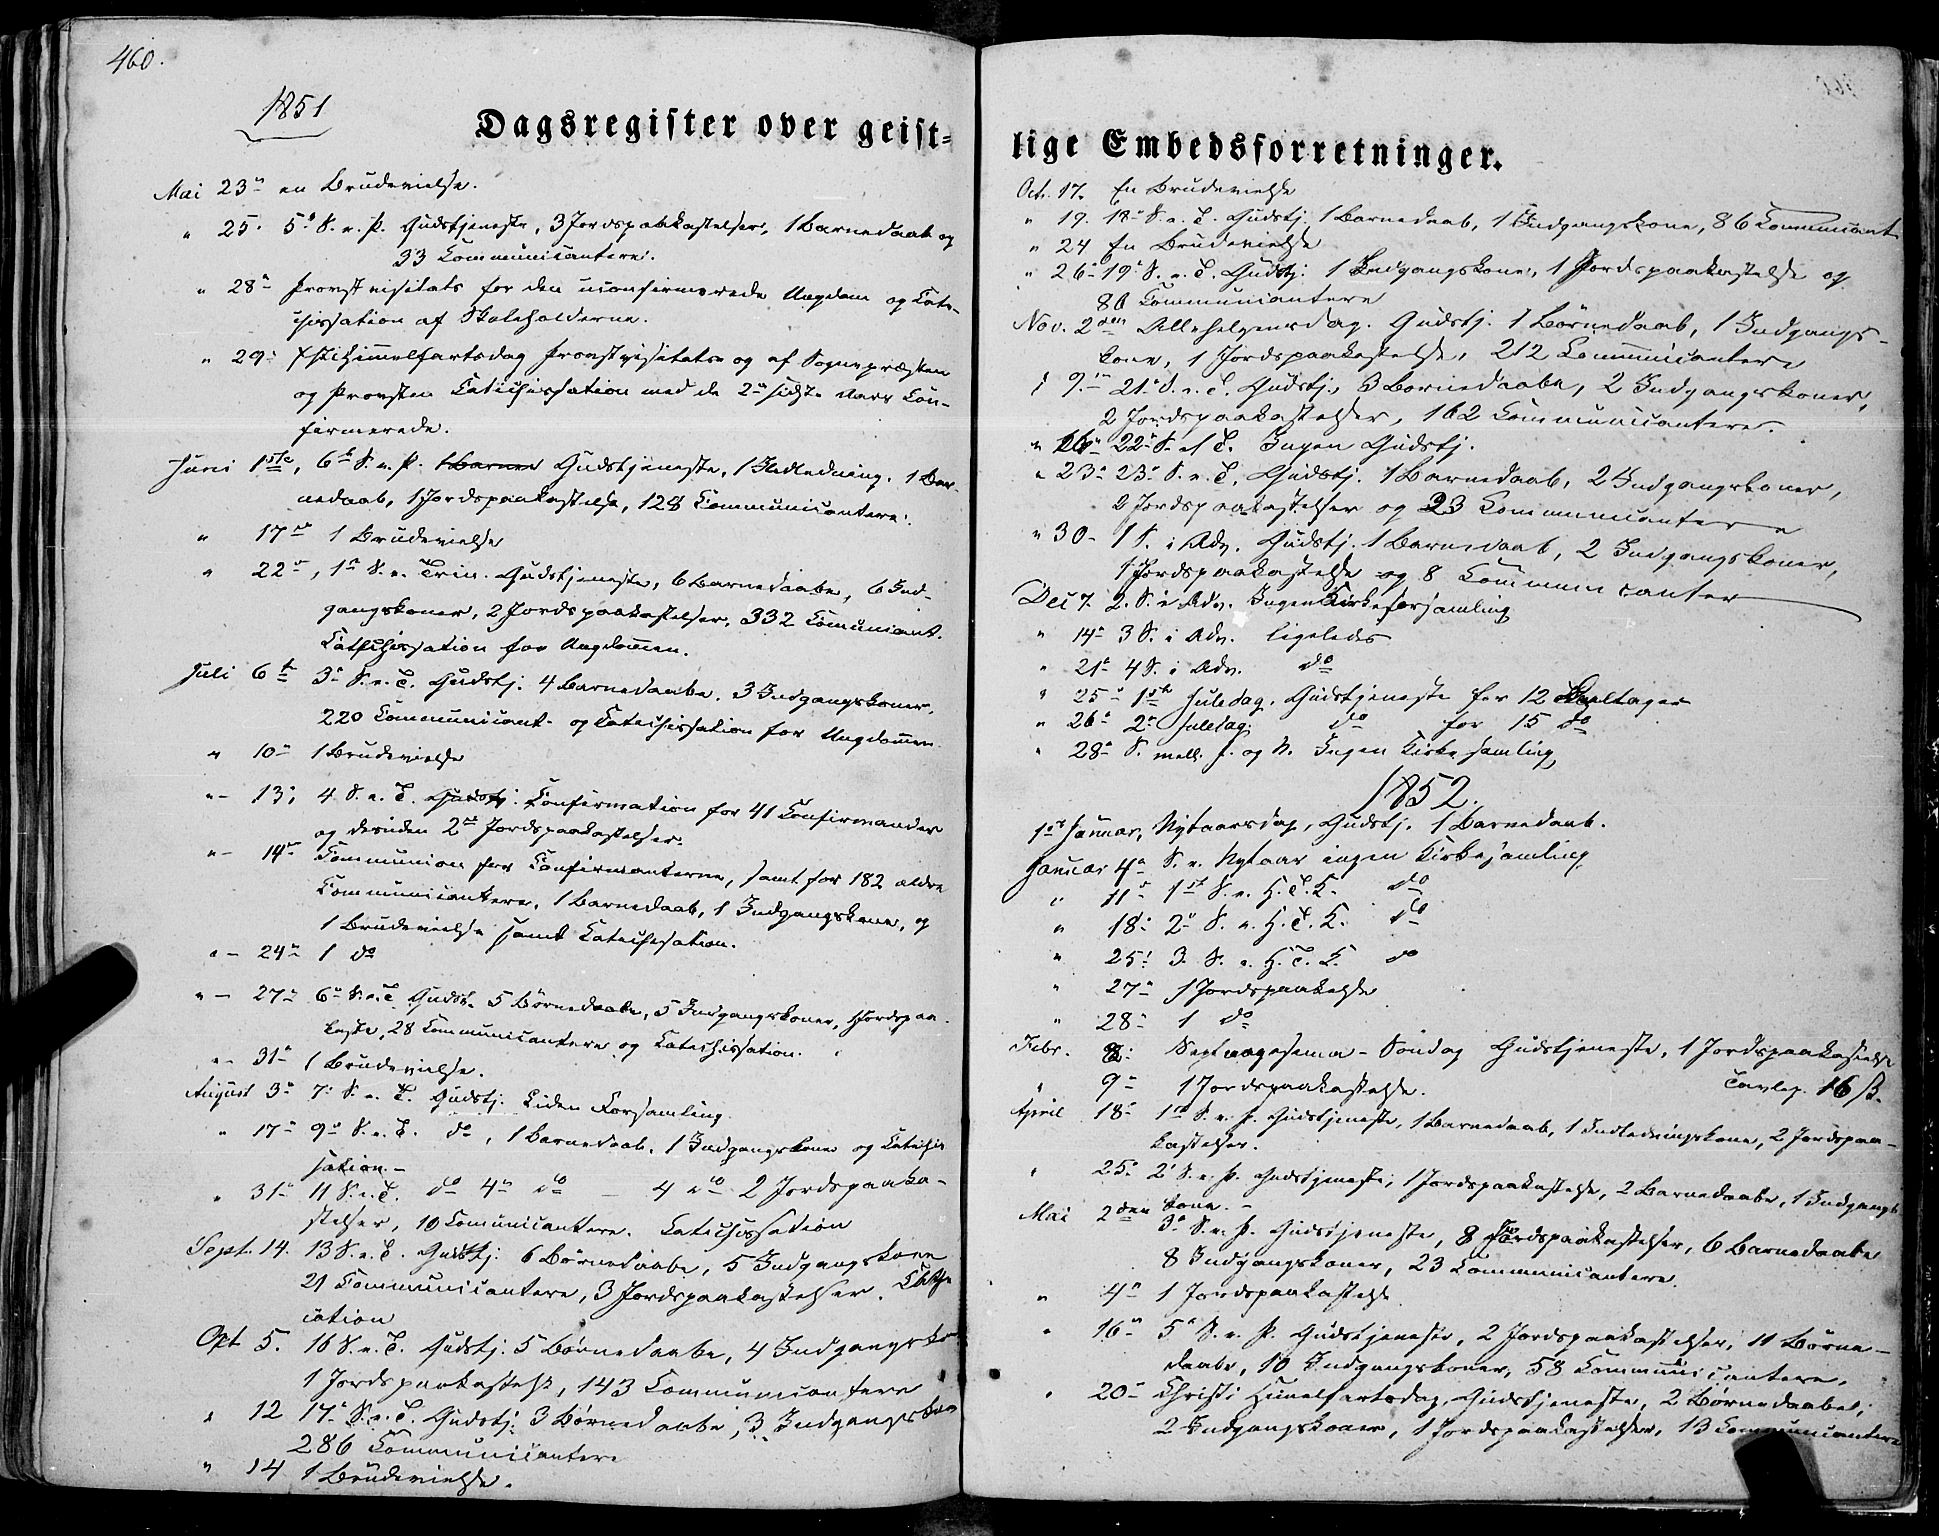 460.
1851
Dagsregister over geist-
Mai 23de en Brudevielse.
" 25. 5te S. e. P. Gudstjeneste, 3 Jordspaakastelser, 1 Barnedaab og
33 Communicantere.
" 28de Provstvisitats for den uconfirmerede Ungdom og Cate-
chisation af Skoleholderne.
" 29: Christi Himmelfartsdag Provstvisitatse og af Sognepræsten
og Provsten Catechisation med de 2de sidste Aars Con-
firmerede.
Juni 1ste, 6te S. e. P. 1 Barned Gudstjeneste, 1 Indledning. 1 Bar-
nedaab, 1 Jordspaakastelse, 128 Communicantere.
" 17de 1 Brudevielse
" 22de, 1ste S. e. Trin. Gudstjeneste, 6 Barnedaabe, 6 Ind-
gangskoner, 2 Jordspaakastelser, 332 Comunicant.
Catechisation for Ungdommen.
Juli 6te 3de S. e. T. Gudstj. 4 Barnedaabe, 3 Indgangskoner,
220 Communicant- og Catechisation for Ungdommen.
" 10de 1 Brudevielse
"- 13; 4 S. e. T. Gudstj. Confirmation for 41 Confirmander
og desuden 2de Jordspaakastelser.
"- 14de Communion for Confirmanterne, samt for 182 ældre
Communicantere, 1 Barnedaab, 1 Indgangskone, og
1 Brudevielse samt Catechisation.
"- 24de 1 do
"- 27de 6te S. e. T. Gudst. 5 Børnedaabe, 5 Indgangskoner, 1 Jordspaa-
kaste, 28 Communicantere og Catechisation.
"- 31de 1 Brudevielse.
August 3de 7: S. e. T. Gudstj. Liden Forsamling.
" 17de 9de S. e. T. do, 1 Barnedaab, 1 Indgangskone og Catechi-
sation.-
" 31de 11 S. e. T. do 4de do - 4 do 2 Jordspaaka-
stelser, 10 Comunicantere. Catechisation
Sept. 14. 13 S. e. T. Gudstj: 6 Børnedaabe, 5 Indgangskone
21 Communicantere, 3 Jordspaakastelser.
cation
Oct 5. 16 S. e. T. Gudstj: 5 Børnedaabe, 4 Indgangsko
1 Jordspaakastelse, 143 Communicantere
" 12 17de S. e. T. Gudstj: 3 Børnedaabe, 3 Indgangskon
286 Communicantere
" 14 1 Brudevielse.
lige Embedsforretninger.
Oct. 17. En Brudevielse
" 19. 18de S. e. T. Gudstj. 1 Barnedaab, 1 Indgangskone, 86 Communicant
" 24 En Brudevielse
" 26de 19de S. e. T. Gudstj. 1 Indgangskone, 1 Jordspaakastelse og
86 Communicantere
Nov. 2den Allehelgensdag. Gudstj. 1 Børnedaab, 1 Indgangs-
kone, 1 Jordspaakastelse, 212 Communicantere
" 9de 21de S. e. T. Gudstj., 3 Børnedaabe, 2 Indgangskoner,
2 Jordspaakastelser, 162 Communicantere.
" 16de 22de S. e. T. Ingen Gudstj.
" 23de 23de S. e. T. Gudstj. 1 Barnedaab, 2 Indgangskoner,
2 Jordspaakastelser og 23 Communicantere
" 30- 1 S. i Adv. Gudstj. 1 Barnedaab, 2 Indgangskoner,
1 Jordspaakastelse og 8 Communicanter
Dec 7. 2. S. i Adv. Ingen Kirkeforsamling
" 14de 3 S. i Adv. ligeledes
" 21de 4 S. i Adv. do
" 25de 1ste Juledag. Gudstjeneste for 12 Deeltager
" 26de 2de Juledag. do for 15 do
" 28de S. mell. J. og N. Ingen Kirkesamling
1852.
1ste Januar, Nytaarsdag, Gudstj. 1 Barnedaab.
Januar 4de S. e. Nytaar ingen Kirkesamling
" 11te 1ste S. e. H. T. K. do
" 18de 2de S. e. H. T. K. do
" 25: 3. S. e. H. T. K. do
" 27de 1 Jordspaakelse
" 28de 1 do
Febr. 8: Septuagesima-Søndag Gudstjeneste, 1 Jordspaakastelse
" 9de 1 Jordspaakastelse. Tavlep. 16 ß.
April 18de 1ste S. e. P. Gudstjeneste, 1 Barnedaab, 1 Indledningskone, 2 Jordspaa-
kastelser.
" 25de 2de S. e. P. Gudstjeneste, 1 Jordspaakastelse, 2 Barnedaabe, 1 Indgangs
kone.-
Mai 2den 3de S. e. P. Gudstjeneste, 8 Jordspaakastelser, 6 Barnedaabe
8 Indgangskoner, 23 Communicantere.
" 4de 1 Jordspaakastelse
" 16de 5te S. e. P. Gudstjeneste, 2 Jordspaakastelser, 11 Børne-
daabe, 10 Indgangskoner, 58 Communicantere.
" 20de Christi Himelfartsdag, Gudstjeneste, 2 Børnedaabe,
2 Indgangskoner, 1 Jordspaakastelse, 13 Communicantere